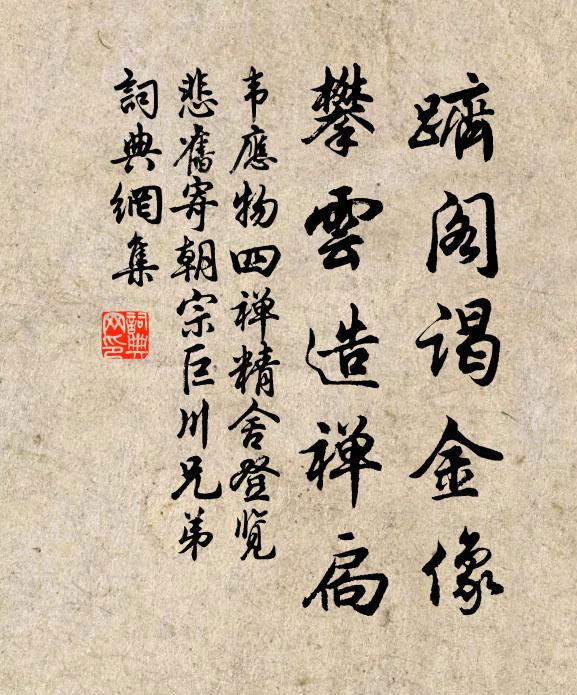 躋阁谒金像
攀雲造禅扃
韦應物四禅精舍登览
悲舊寄朝宗巨川兄弟
詞典網集
詞典
网印